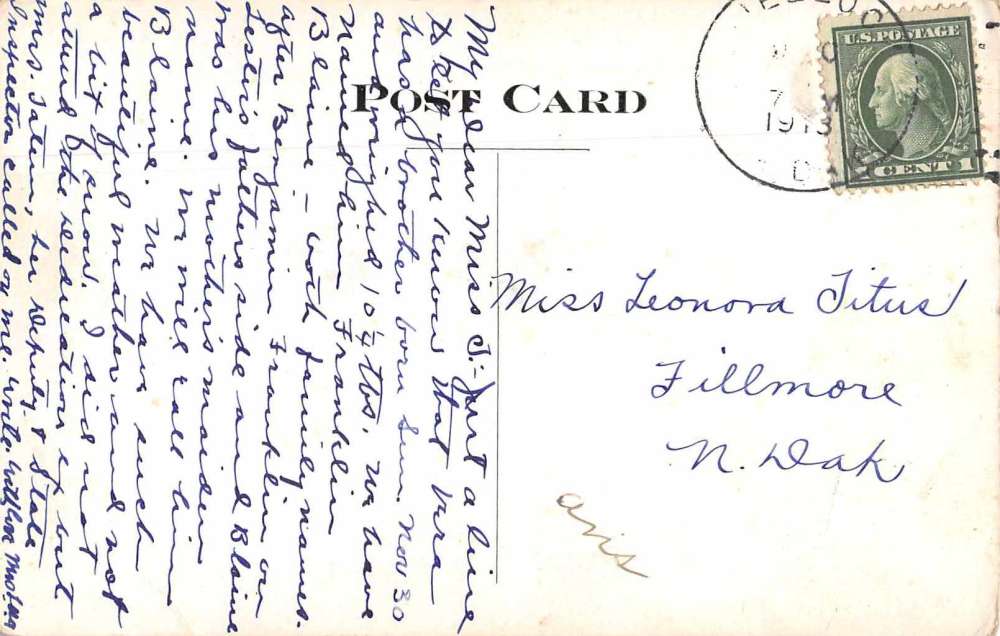 POST CARD
U.S. POSTAGE
1 CENT 1
1913
My dear Miss T:- Just a line
to let you know that Vera
has a brother born Sun. Nov 30
and weighed 10¼ lbs. We have
named him Franklin
Blaine - both family names.
after Benjamin Franklin on
Lester's father's side and Blaine
was his mother's maiden
name. We will call him
Blaine. We have such
beautiful weather and not
a bit of snow. I did not
attend the dedication ex but
Mrs. Tatem, her deputy & State
Inspector called on me. Write. With love
Miss Leonora Titus
Fillmore
N. Dak
avis